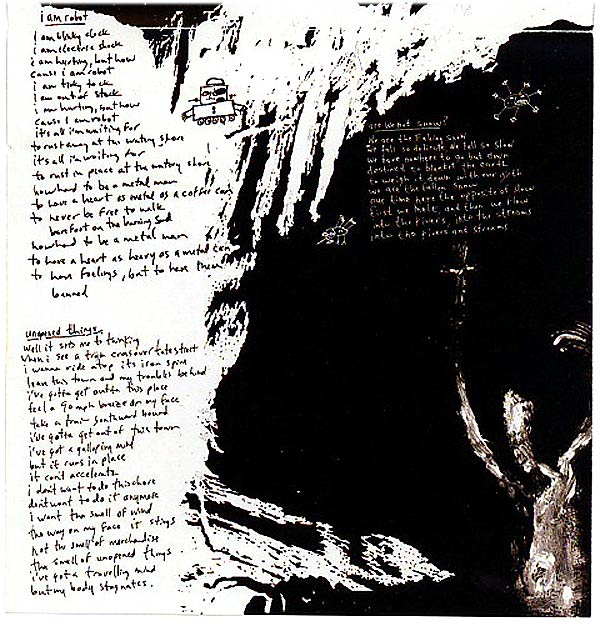 i am robot
i am blinky clock
i am electric shock
i am hurting, but how
cause i am robot
i am ticky tock
i am out of stock
i am hurting, but how
cause I am robot
it's all i'm waiting for
to rust away at the watery shore
it's all i'm waiting for
to rust in peace at the watery shore
how hard to be a metal man
to have a heart as metal as a coffee can
to never be free to walk
bare foot on the burning sand
how hard to be a metal man
to have a heart as heavy as a metal can
to have feelings, but to have them
banned
unopened things
well it sets me to thinking
when i see a train cross over state street
i wanna ride atop its iron spine
leave this town and my troubles behind
i've gotta get outta this place
feel a 90 mph breeze on my face
take a train southward bound
i've gotta get out of this town
i've got a galloping mind
but it runs in place
it can't accelerate
i don't want to do this chore
don't want to do it anymore
i want the smell of wind
the way on my face it stings
not the smell of merchandise
the smell of unopened things
i've got a travelling mind
but my body stagnates.
are we not snow?
we are the fallen snow
we fall so delicate we fall so slow
we have nowhere to go but down
destined to blanket the ground
to weigh it down with our girth
we are the fallen snow
our time here the opposite of slow
first we melt, and then we flow
into the rivers, into the streams
into the rivers and streams